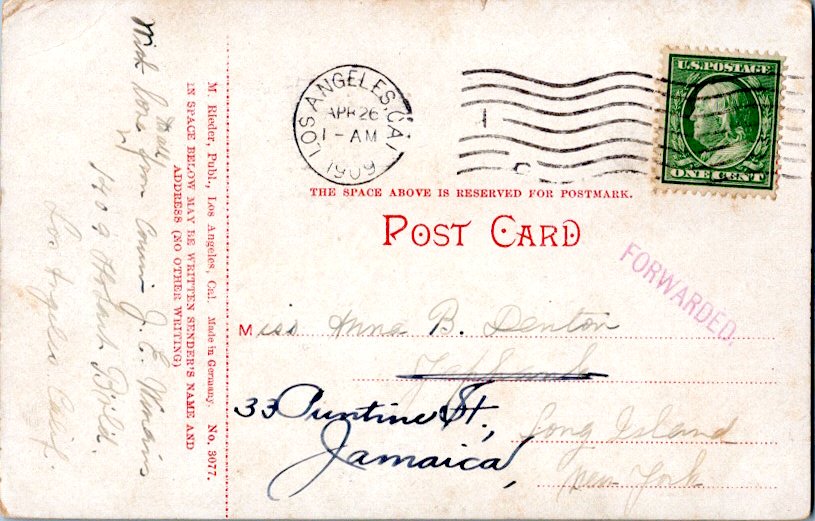 With love
from Cousin J. E.
1409 Hobart Blvd.
Los Angeles Calif.
M. Rieder, Publ., Los Angeles, Cal. Made in Germany. No. 3077.
IN SPACE BELOW MAY BE WRITTEN SENDER'S NAME AND
ADDRESS (NO OTHER
WRITING)
LOS ANGELES, CAL
APR 26
1-AM
1909
U.S. POSTAGE
ONE CENT
THE SPACE ABOVE IS RESERVED FOR POSTMARK.
POST CARD
FORWARDED.
Miss Anna B. Denton
Yaphank
33 Puntine St.,
Long Island
Jamaica,
New York